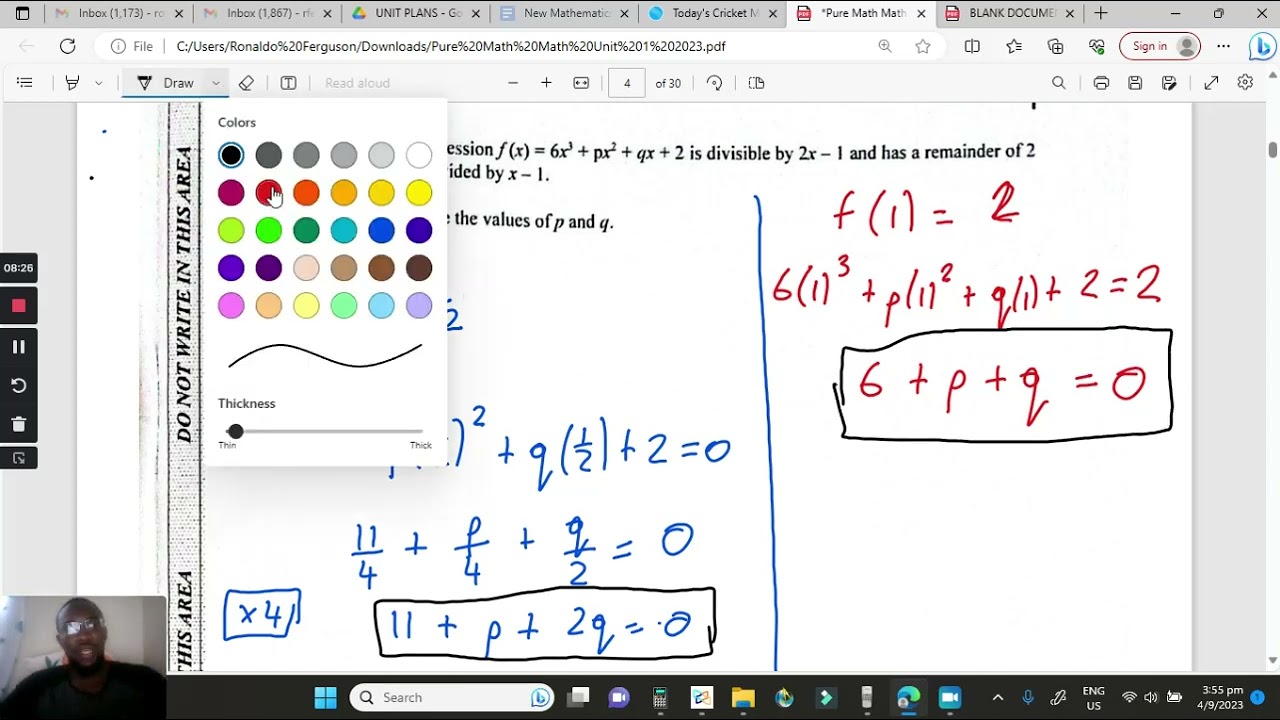 Inbox (1,173) - ro
Inbox (1,867) - rfe
UNIT PLANS - Go
New Mathematics
Today's Cricket M
*Pure Math Math
BLANK DOCUME
File
C:/Users/Ronaldo%20Ferguson/Downloads/Pure%20Math%20Math%20Unit%201%202023.pdf
Sign in
Draw
Read aloud
4 of 30
Colors
Thickness
Thin Thick
08:26
DO NOT WRITE IN THIS AREA
THIS AREA
ession f (x) = 6x³ + px² + qx + 2 is divisible by 2x – 1 and has a remainder of 2
ided by x – 1.
the values of p and q.
2
)² + q(1/2) + 2 = 0
11/4 + p/4 + q/2 = 0
x 4
11 + p + 2q = 0
f(1) = 2
6(1)³ + p(1)² + q(1) + 2 = 2
6 + p + q = 0
Search
ENG
US
3:55 pm
4/9/2023